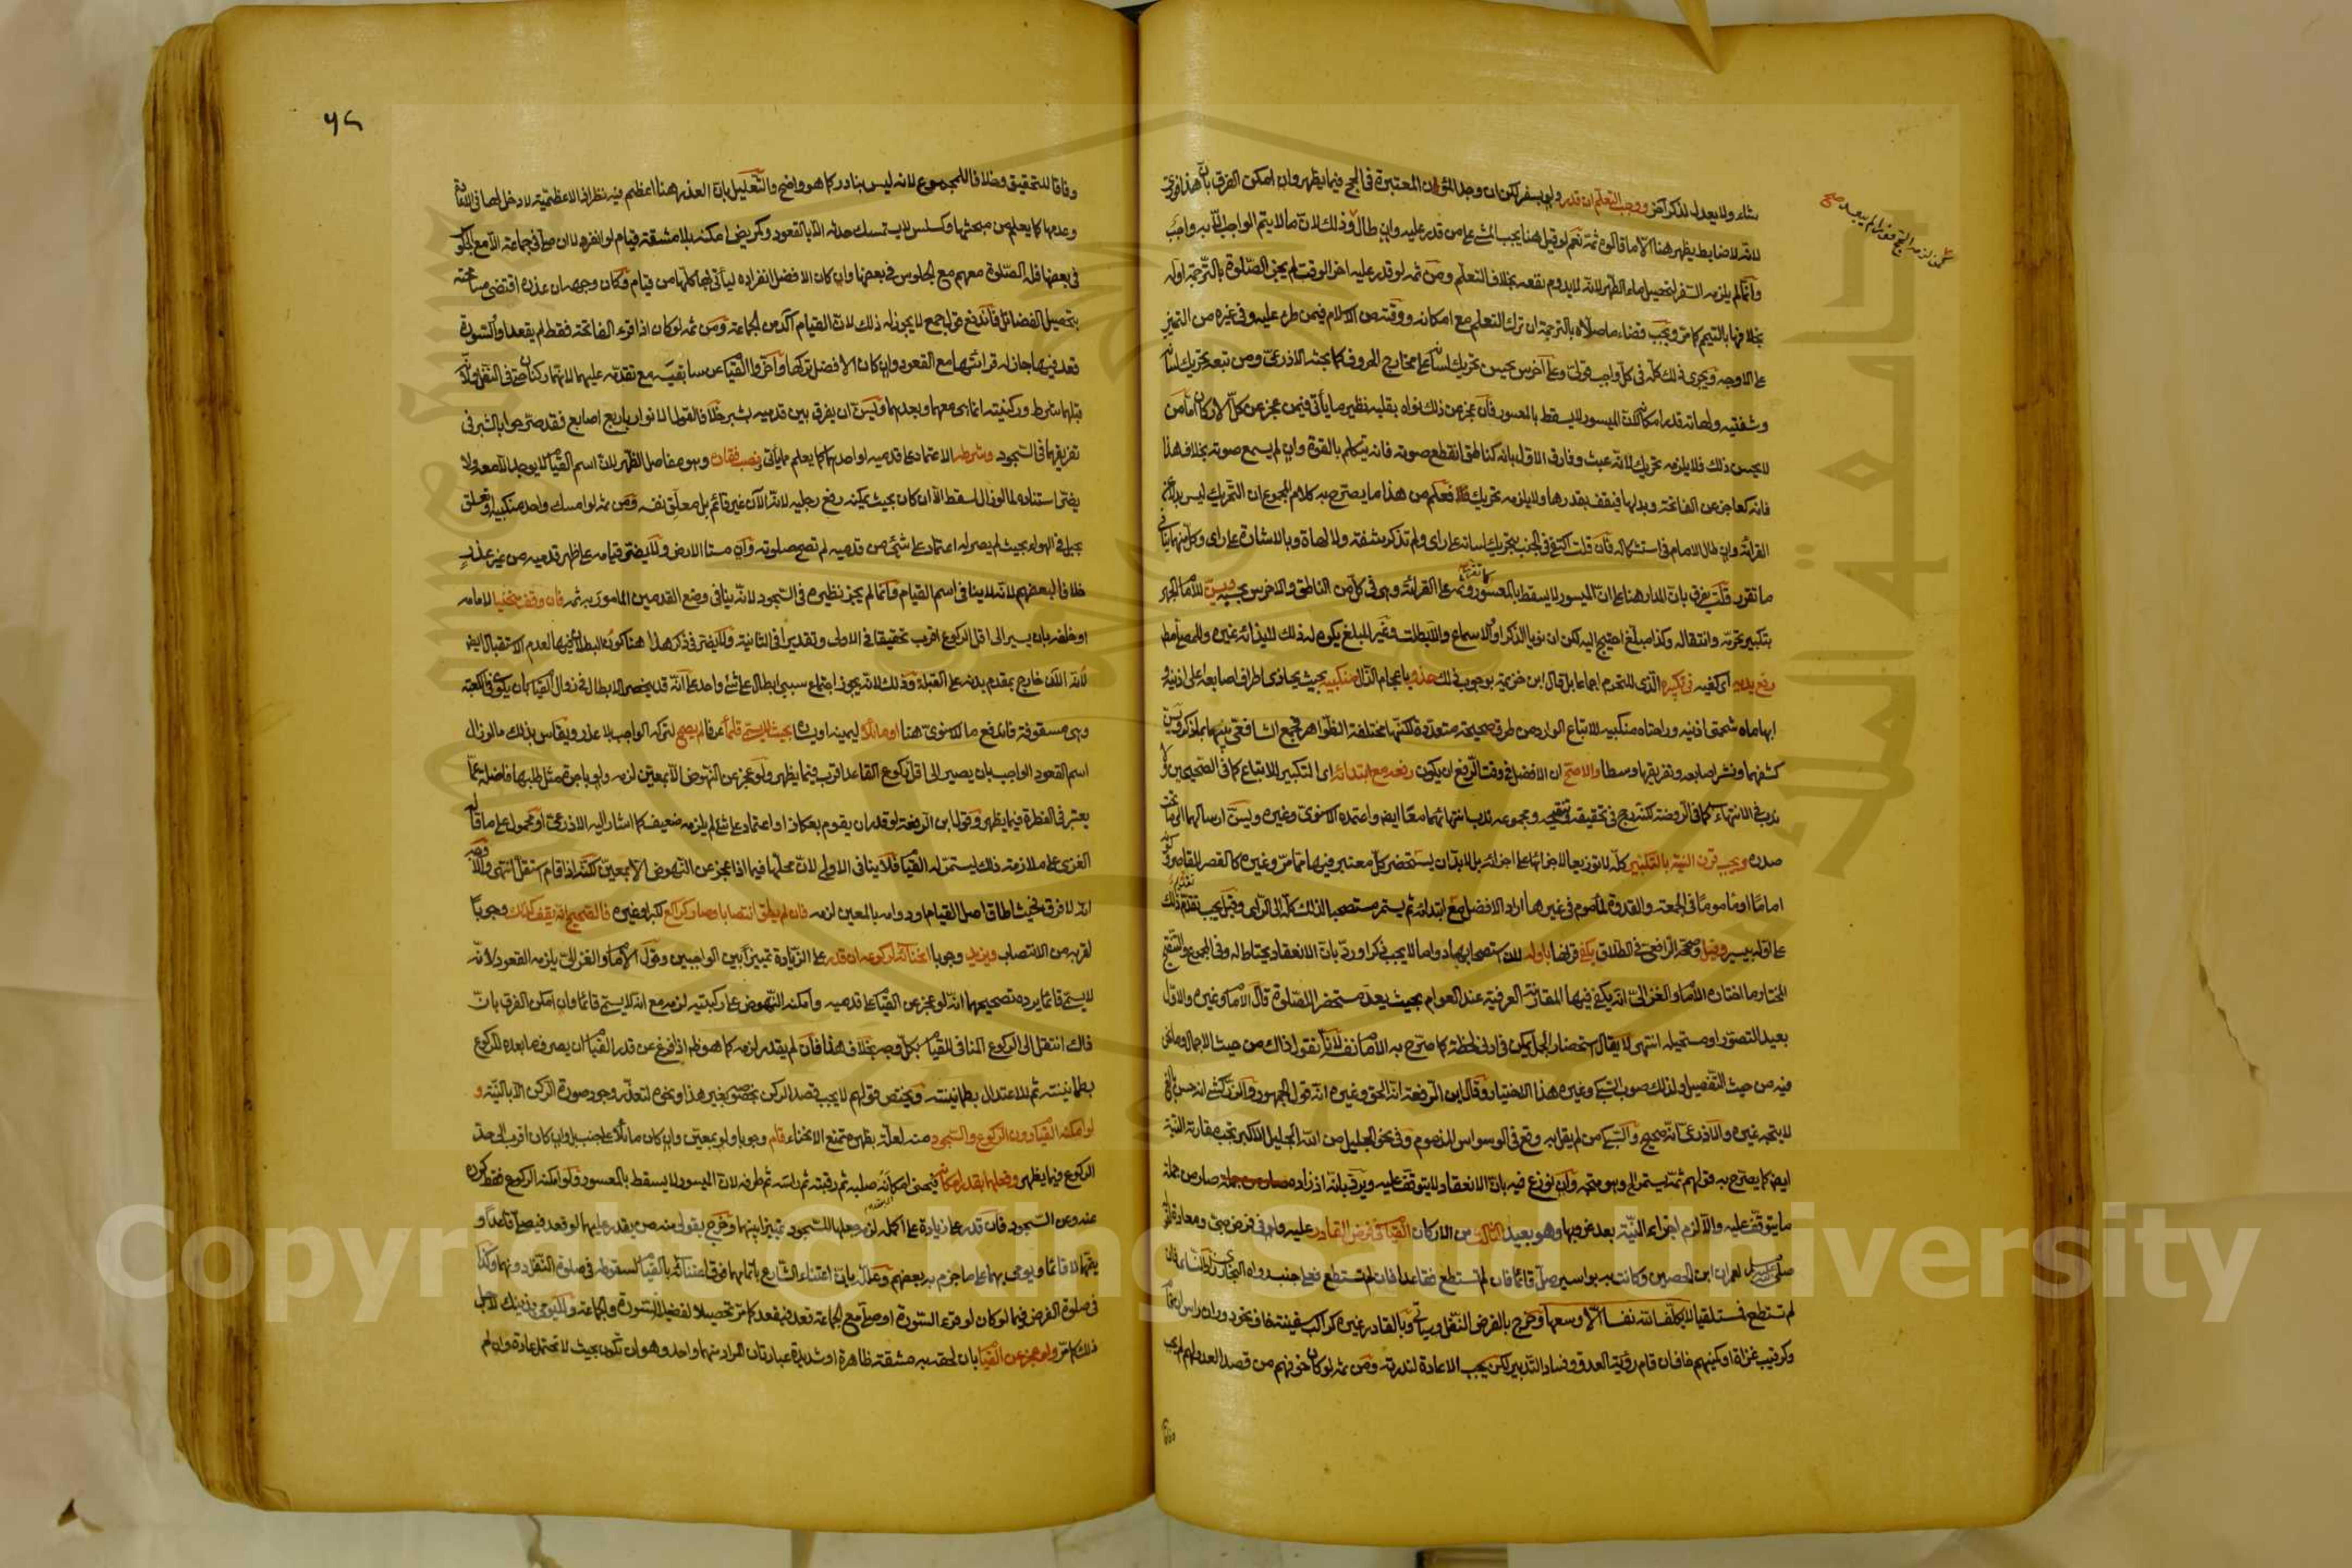 شاء ولا يعدل لذكر آخر ووجب التعلم ان قدر ولو بسفر لكن ان وجد المؤن المعتبرة في الحج فيما يظهر وان امكن الفرق بان هذا فوري
لانه لا ضابط يظهر هنا الا ما قالوه ثمة نعم لو قيل هنا يجب المشي على من قدر عليه وان طال وذلك لان ما لا يتم الواجب الا به واجب
وانما لم يلزمه السفر لتحصيل ماء الطهر لانه لا يدوم نفعه بخلاف التعلم ومن ثمه لو قدر عليه اخر الوقت لم يجز الصلوة بالترجمة اوله
بخلافها بالتيمم كما مر ويجب قضاء ما صلاه بالترجمة ان ترك التعلم مع امكانه ووقته من الاسلام فيمن طرء عليه وفي غيره من التمييز
على الاوجه ويجري ذلك كله في كل واجب قولي وعلى آخرس يحسن تحريك لسانه على مخارج الحروف كما بحثه الاذرعي ومن تبعه تحريك لسانه
وشفتيه ولهاته قدر امكانه لان الميسور لا يسقط بالمعسور فان عجز عن ذلك نواه بقلبه نظير ما يأتي فيمن عجز عن كل الاركان اما من
لا يحسن ذلك فلا يلزمه تحريك لانه عبث وفارق الاول بانه كناطق انقطع صوته فانه يتكلم بالقوة وان لم يسمع صوته بخلاف هذا
فانه كعاجز عن الفاتحة وبدلها فيقف بقدرها ولا يلزمه تحريك فلا فعلم من هذا ما يصرح به كلام المجموع ان التحريك ليس بدلا عن
القرائة وان طال الامام في استشكاله فان قلت اكتفي في الجنب بتحريك لسانه على راي ولم تذكر شفته ولا لهاة وبالاشارة على راي وكل منهما ينافي
ما تقرر قلت يفرق بان المدار هنا على ان الميسور لا يسقط بالمعسور وثمه على القرائة وهي في كل من الناطق والاخرس بحسبه ويسن للامام الجهر
بتكبير تحرمه وانتقاله وكذا مبلغ احتيج اليه لكن ان نويا الذكر او والاسماع والا بطلت وغير المبلغ يكره له ذلك لايذائه غيره وللمصلي مطلقا
رفع يديه اي كفيه في تكبيره الذي للتحرم اجماعا بل قال ابن خزيمة بوجوب ذلك حذو باعجام الذال منكبيه بحيث يحاذي اطراف اصابعه اعلى اذنيه و
ابهاماه شحمتي اذنيه وراحتاه منكبيه للاتباع الوارد من طرق صحيحة متعددة لكنها مختلفة الظواهر فجمع الشافعي بينها بما ذكر ويسن
كشفهما ونشر اصابعه وتفريقها وسطا والاصح ان الافضل في وقت الرفع ان يكون رفعه مع ابتدائه اي التكبير للاتباع كما في الصحيحين ولا
ندب في الانتهاء كما في الروضة لكنه رجح في تحقيقه وتنقيحه ومجموعه ندب انتهائهما معا ايض واعتمده الاسنوي وغيره ويسن ارسالهما الى ما تحت
صدره ويجب قرن النية بالتكبير كله لا توزيعا لاجزائها على اجزائه بل لا بد ان يستحضر كل معتبر فيها مما مر وغيره كالقصر للقاصر وكونه
اماما او ماموما في الجمعة والقدوة لمأموم في غيرها اراد الافضل مع ابتدائه ثم يستمر مستصحبا لذلك كله الى الراي وقيل يجب تقدم ذلك
على اوله بيسير وقيل وصححه الرافعي في الطلاق يكفي قرنها باوله لان استصحابها دواما لا يجب ذكرا ورد بان الانعقاد يحتاط له وفي المجموع والتنقيح
المختار ما اختاره الامام والغزالي انه يكفي فيها المقارنة العرفية عند العوام بحيث يعد مستحضرا للصلوة قال الامام وغيره والاول
بعيد التصور او مستحيله انتهى لا يقال استحضار الجمل يمكن في ادنى لحظة كما صرح به الامام نفسه لانا نقول ذاك من حيث الاجمال وما نحن
فيه من حيث التفصيل ولذلك صوب السبكي وغيره هذا الاختيار وقال ابن الرفعة انه الحق وغيره انه قول الجمهور والزركشي انه حسن بالغ
لا يتجه غيره والاذرعي انه صحيح والسبكي من لم يقل به وقع في الوسواس المذموم وفي نحو الجليل من الله الجليل اكبر تجب مقارنة النية
ايض كما يصرح به قولهم ثمه يستمر الى وهو متجه وان نوزع فيه بان الانعقاد لا يتوقف عليه ويرد بانه اذ زاده صار من جملة
ما يتوقف عليه والا لزم اجزاء النية بعد عزوبها وهو بعيد الثالث من الاركان القيام في فرض القادر عليه ولو في فرض صبي ومعادة
صلى الله عليه وسلم لعمران ابن الحصين وكانت به بواسير صل قائما فان لم تستطع فقاعدا فان لم تستطع فعلى جنب رواه البخاري زاد النسائي فان
لم تستطع فمستلقيا لا يكلف الله نفسا الا وسعها وخرج بالفرض النفل وسياتي وبالقادر غيره كراكب سفينة خاف نحو دوران راس ان قام
وكرقيب غزاة او كمينهم خاف ان قام رؤية العدو وفساد التدبير لكن يجب الاعادة لندرته ومن ثمه لو كان خوفهم من قصد العدو لهم لم يجب
٥٦
وفاقا للتحقيق وخلافا للمجموع لانه ليس بنادر كما هو واضح والتعليل بان العذر هنا اعظم فيه نظر اذ الاعظمية لا دخل لها في الاعادة
وعدمها كما يعلم من مبحثها وكسلس لا يستمسك حدثه الا بالقعود وكمريض امكنه بلا مشقة قيام لو انفرد لا ان صلى في جماعة الا مع الجلوس
في بعضها فله الصلوة معهم مع الجلوس في بعضها وان كان الافضل انفراده ليأتي بها كلها من قيام وكان وجهه ان عذره اقتضى مسامحته
بتحصيل الفضائل فاندفع قول جمع لا يجوز له ذلك لان القيام آكد من الجماعة ومن ثمه لو كان اذا قرء الفاتحة فقط لم يقعد او والسورة
قعد فيها جاز له قرائتها مع القعود وان كان الافضل تركها واخروا القيام عن سابقيه مع تقدمه عليهما لانهما ركنان حتى في النفل ولانه
قبلهما شرط وركنيته انما هي معهما وبعدهما ويسن ان يفرق بين قدميه بشبر خلافا لقول الانوار باربع اصابع فقد صرحوا بالشبر في
تفريقهما في السجود وشرطه الاعتماد على قدميه او احدهما كما يعلم مما يأتي ونصب فقاره وهو مفاصل الظهر لان اسم القيام لا يوجد الا معه ولا
يضر استناده لما لو زال لسقط الا ان كان بحيث يمكنه رفع رجليه لانه الآن غير قائم بل معلق نفسه ومن ثمه لو امسك واحد منكبيه او تعلق
بحبل في الهواء بحيث لم يصر له اعتماد على شئ من قدميه لم تصح صلوته وان مستا الارض ولا يضر قيامه على ظهر قدميه من غير عذر
خلافا لبعضهم لانه لا ينافي اسم القيام وانما لم يجز نظيره في السجود لانه ينافي وضع القدمين المأمور به ثمه فان وقف منحنيا لامامه
او خلفه بان يسير الى اقل الركوع اقرب تحقيقا في الاولى وتقديرا في الثانية ولا يضر في ذكر هذا هنا كون البطلان فيها لعدم الاستقبال ايض
لانه الآن خارج بمقدم بدنه على القبلة وذلك لانه يجوز اجتماع سببي ابطال على شئ واحد على انه قد يخص الابطال في زوال القيام كان يكون في الكعبة
وهي مسقوفة فاندفع ما للاسنوي هنا او مائلا ليمينه او يساره بحيث لا يسمى قائما عرفا لم يصح لتركه الواجب بلا عذر ويقاس بذلك ما لو زال
اسم القعود الواجب بان يصير الى اقل ركوع القاعد اقرب فيما يظهر ولو عجز عن النهوض الا بمعين لزمه ولو باجرة مثل طلبها فاضلة عما
يعتبر في الفطرة فيما يظهر وقول ابن الرفعة لو قدر ان يقوم بعكاز او اعتماد على شئ لم يلزمه ضعيف كما اشار اليه الاذرعي او محمول على ما قاله
الغزي على ملازمة ذلك ليستمر له القيام فلا ينافي الاولى لان محلها فيما اذا عجز عن النهوض الا بمعين لكنه اذا قام استقل انتهى والاوجه
انه لا فرق فحيث اطاق اصل القيام او دوامه بالمعين لزمه فان لم يطق انتصابا وصار كراكع لكبر او غيره فالصحيح انه يقف كذلك وجوبا
لقربه من الانتصاب ويزيد وجوبا انحنائه لركوعه ان قدر على الزيادة تمييزا بين الواجبين وقول الامام والغزالي يلزمه القعود لانه
لا يسمى قائما يرده تصحيحهما انه لو عجز عن القيام على قدميه وامكنه النهوض على ركبتيه لزمه مع انه لا يسمى قائما وان امكن الفرق بان
ذاك انتقل الى الركوع المنافي للقيام بكل وجه بخلاف هذا فان لم يقدر لزمه كما هو ظ اذا فرغ عن قدر القيام ان يصرف ما بعده للركوع
بطمانينته ثم للاعتدال بطمانينته ويختص قولهم لا يجب قصد الركن بخصوصه بغير هذا ونحوه لتعذر وجود صورة الركن الا بالنية و
لو امكنه القيام دون الركوع والسجود منه لعلة بظهره تمنع الانحناء قام وجوبا ولو بمعين وان كان مائلا على جنب بل وان كان اقرب الى حد
الركوع فيما يظهر وفعلهما بقدر امكانه فيحنى امكانه صلبه ثم رقبته ثم راسه ثم طرفه لان الميسور لا يسقط بالمعسور ولو امكنه الركوع فقط كرره
عنه وعن السجود فان قدر على زيادة على اكمله لزمه جعلها للسجود تمييزا بينهما وخرج بقولي منه من يقدر عليهما لو قعد فيصلي قاعدا و
يتمهما لا قائما ويومي بهما على ما جزم به بعضهم وعلله بان اعتناء الشارع باتمامهما فوق اعتنائه بالقيام لسقوطه في صلوة النفل دونهما وكذا
في صلوة الفرض فيما لو كان لو قرء السورة او صلى مع الجماعة قعد فيقعد كما مر تحصيلا لفضيلة السورة والجماعة
ذلك كما مر ولو عجز عن القيام بان لحقه به مشقة ظاهرة او شديدة عبارتان المراد منهما واحد وهو ان تكون بحيث لا تحتمل عادة وان لم